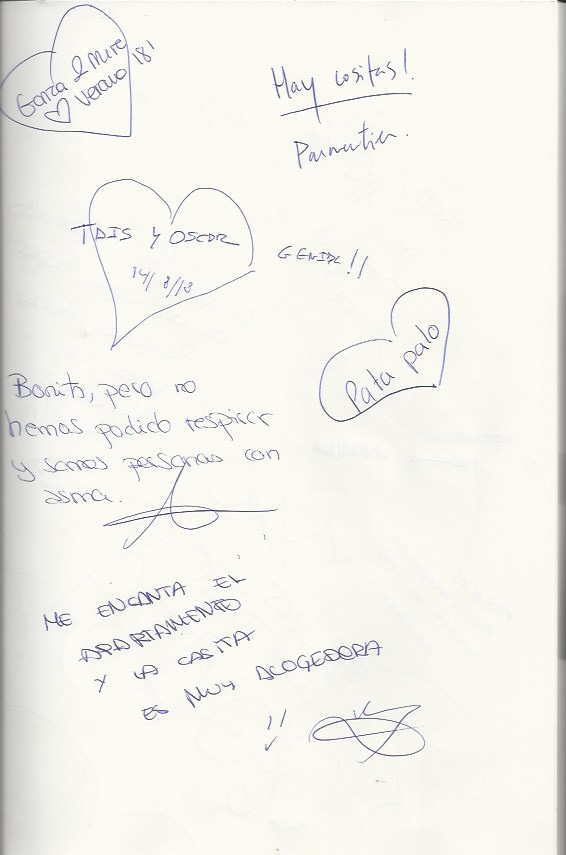 Garza & Mire
Verano 18'
Hay cositas!
Parmentier.
TAIS Y OSCAR
14/8/18
GENIAL!!
Pata palo
Bonito, pero no
hemos podido respirar
y somos personas con
asma.
ME ENCANTA EL
APARTAMENTO
Y LA CASITA
ES MUY ACOGEDORA
!!